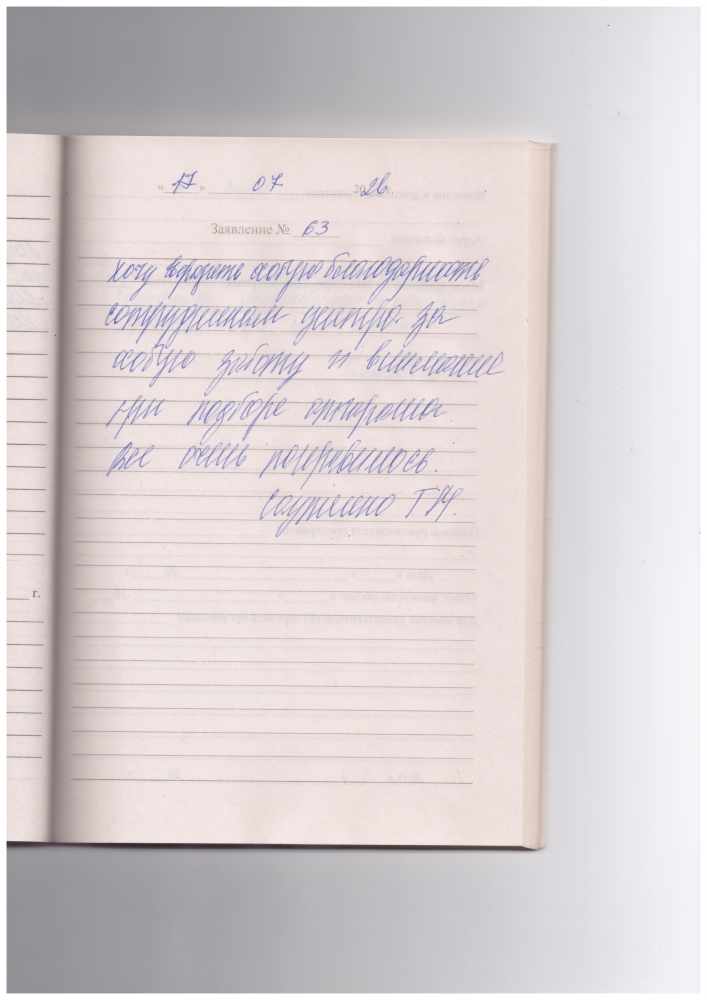 « 17 » 07 2026
Заявление № 63
Хочу выразить особую благодарность
сотрудникам центра за
особую заботу и внимание
при подборе
Все очень понравилось.
г.